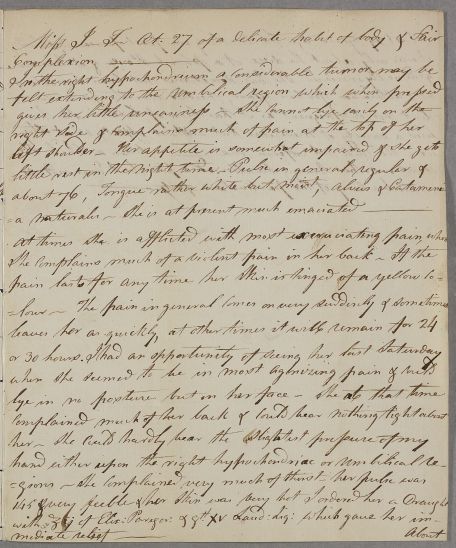 Miss J— T— Æt. 27 of a delicate habit of body & Fair
Complexion
In the right hypochondrium a considerable tumor may be
felt extending to the Umbilical region which when pressed
gives her little uneasiness — She cannot lye easily on the
right side & complains much of pain at the top of her
left shoulder — Her appetite is somewhat impaired & She gets
little rest in the night time — Pulse in general regular &
about 76, Tongue rather white but moist, Alvus & Catamene
=a naturales — She is at present much emaciated
At times she is afflicted with most excruciating pain when
She complains much of a violent pain in her back — If the
pain lasts for any time her Skin is tinged of a yellow co-
-lour — The pain in general comes on very suddenly & sometimes
leaves her as quickly, at other times it will remain for 24
or 30 hours. I had an opportunity of seeing her last Saturday
when she seemed to be in most agonizing pain & could
lye in no posture but on her face — She at that time
complained much of her back & could bear nothing tight about
her — She could hardly bear the slightest pressure of my
hand either upon the right hypochondriac or Umbilical re-
-gions — She complained very much of thirst her pulse was
145 & very feeble & her Skin was very hot I ordered her a Draught
with of Elix: Paregor: & gtt XV Laud: liq: which gave her im-
mediate relief —
About